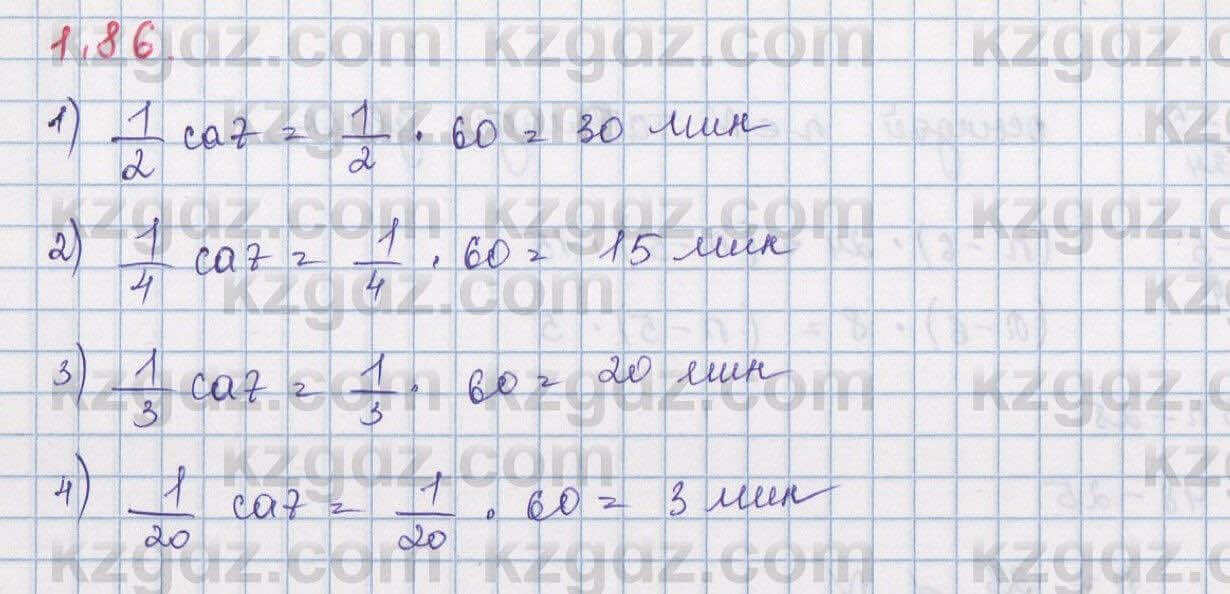 1.86.
1) 1/2 саг = 1/2 · 60 = 30 мин
2) 1/4 саг = 1/4 · 60 = 15 мин
3) 1/3 саг = 1/3 · 60 = 20 мин
4) 1/20 саг = 1/20 · 60 = 3 мин
kzgdz.com